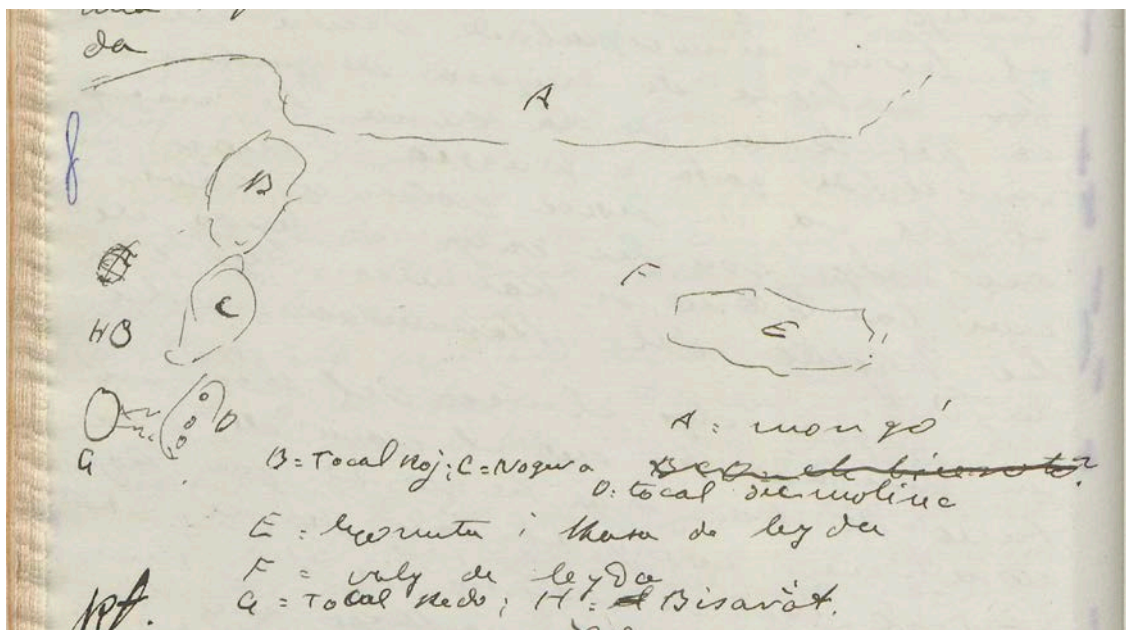 da
A
B
F
C
E
H
D
G
A = mongó
B = Tocal Roj; C = Noguera
D = tocal de moline
E = i de leyda
F = de leyda
G = Tocal Redo; H = Bisarót.